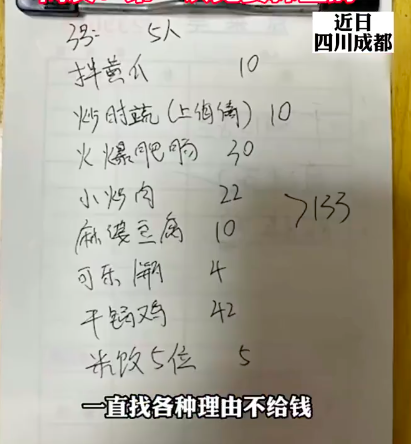 近日
四川成都
3号: 5人
拌黄瓜 10
炒时蔬(上伯倩) 10
火爆肥肠 30
小炒肉 22
麻婆豆腐 10
>133
可乐1瓶 4
干锅鸡 42
米饭5位 5
一直找各种理由不给钱